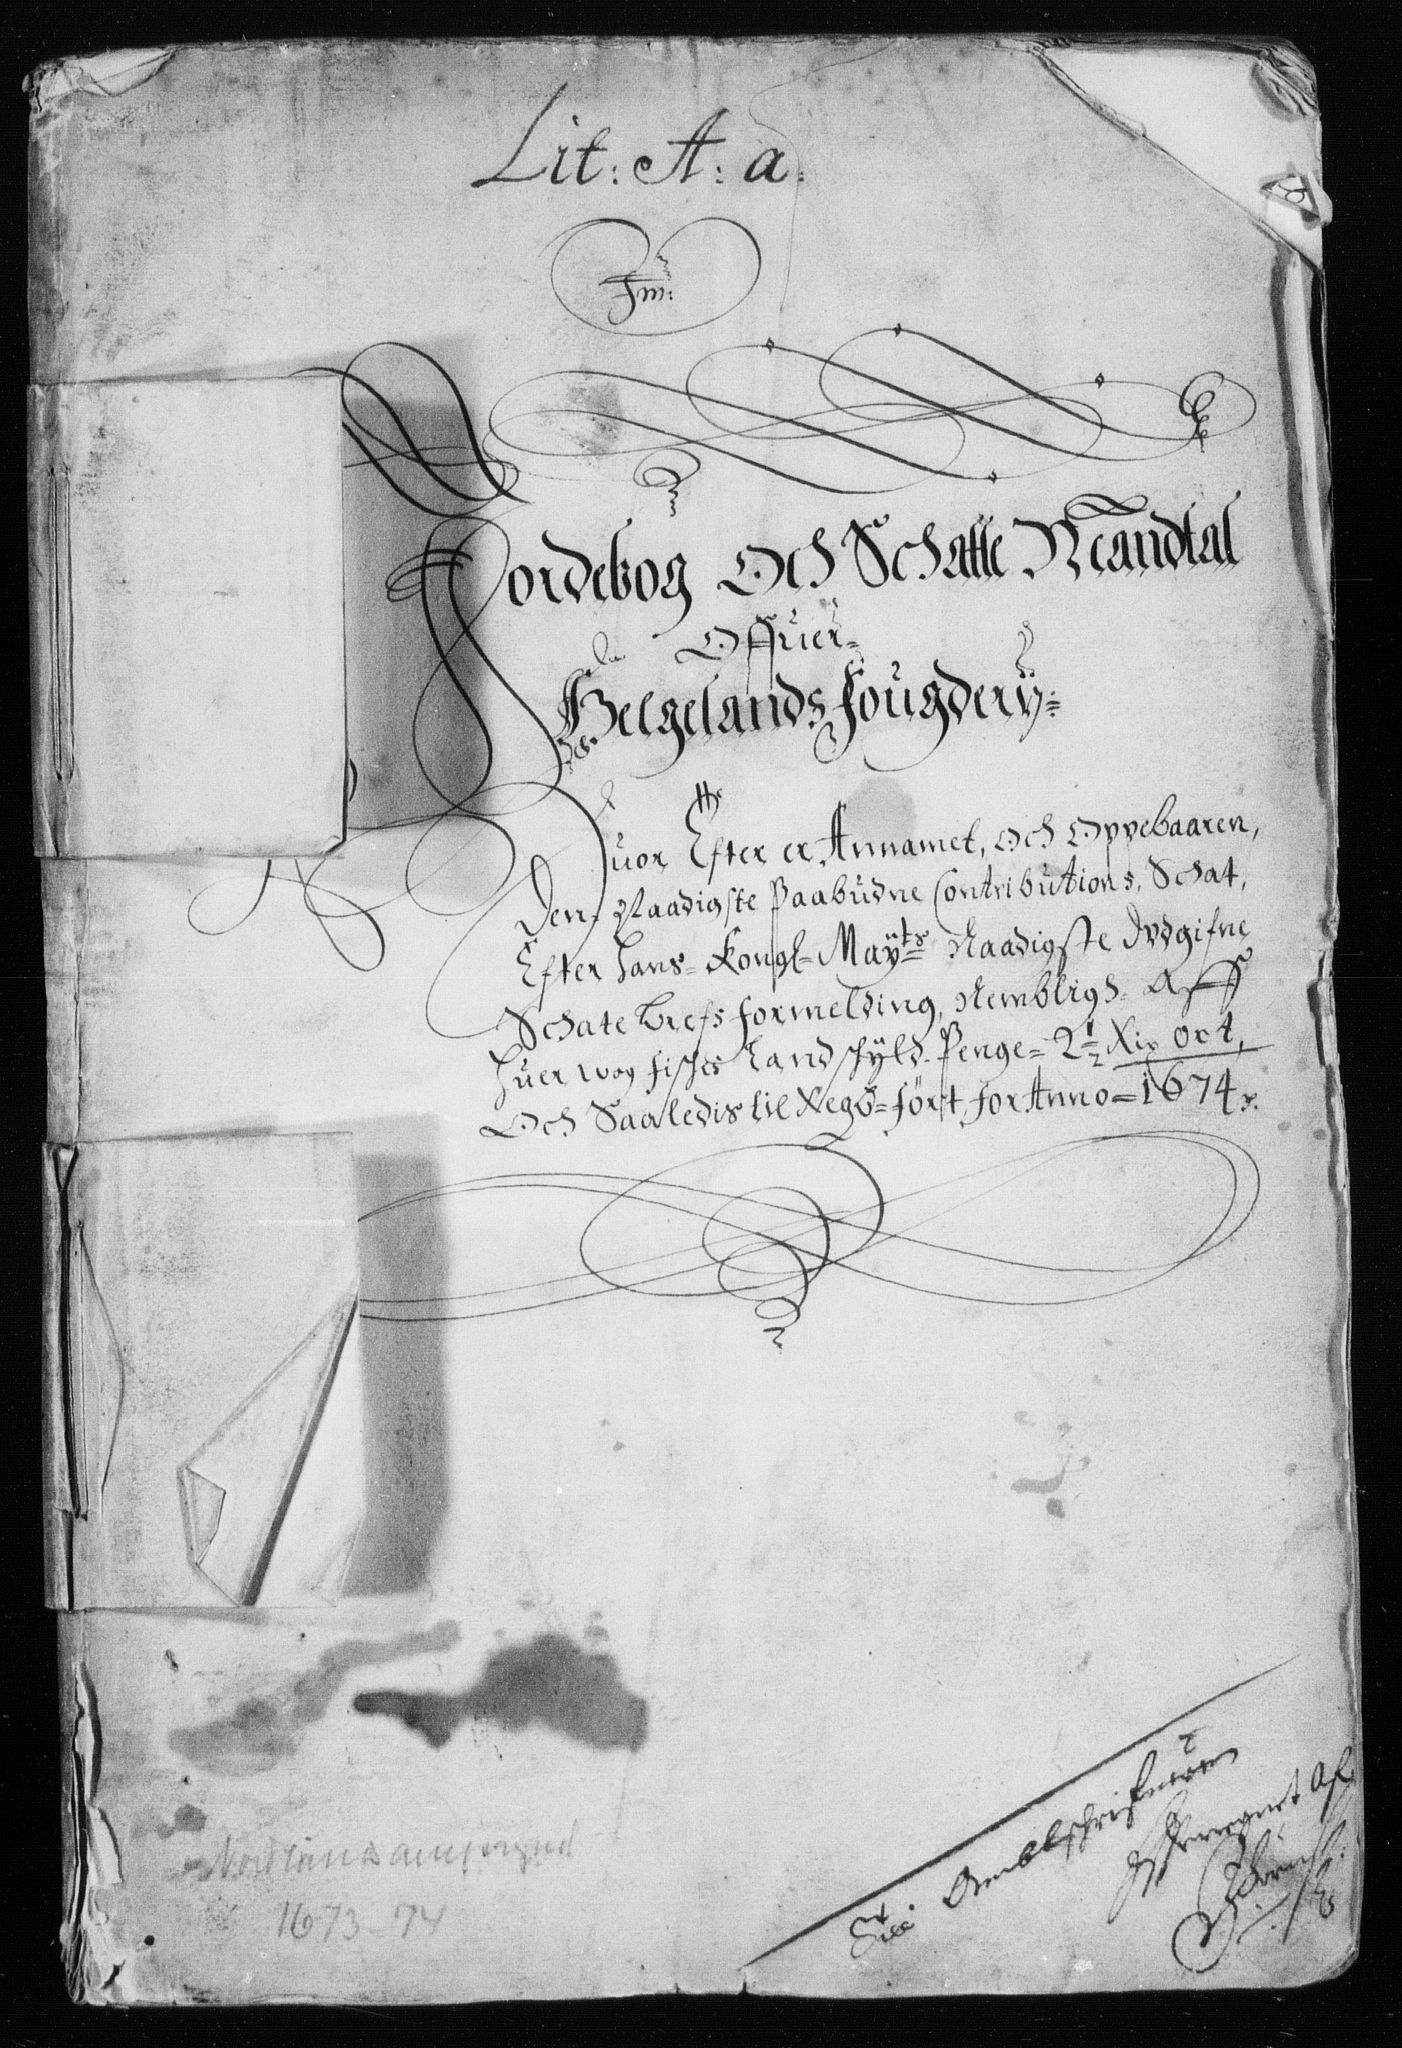 Lit: A: a:
Jm:
Jordebog Och Schatte Mandtal
Offuer
Helgelands fougdery
Huor Efter er Annamet, och Oppebaaren,
Den Naadigste Paabudne Contributions, Schat,
Efter hans Kongl Mayts Naadigste Vdgifne
Schate brefs formelding, Nembligh Aff
huer wog fisches Landschyld Penge 2 1/2 Xix ort,
Och Saaledis til Regb fört, for Anno 1674
Till
1673-74